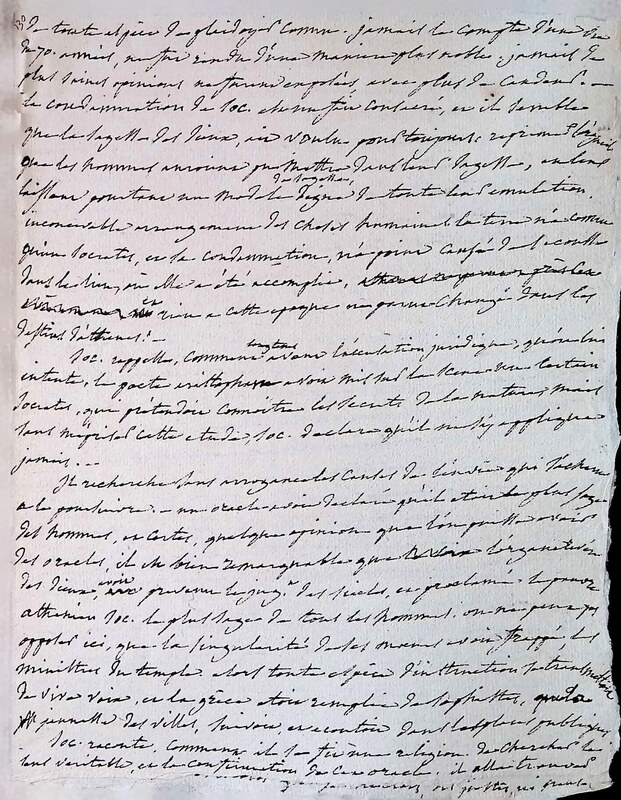 de toute espèce de plaidoyer connu. jamais le compte d'une vie
de 70. années, ne fut rendu d'une manière plus noble. jamais de
plus saines opinions ne furent employées, avec plus de candeur. —
la condamnation de Soc. et consacré, et il semble
que la sagesse des Dieux, ait voulu pour toujours reprimer l'orgueil
que les hommes auroient pu mettre dans leur sagesse, en leur
de sagesse,
laissant pourtant un modèle digne de toute leur emulation.
inconcevable arrangement des choses humaines la terre n'a connu
qu'un Socrates, et la condamnation, n'a point causé de secousse
dans le lieu, où elle a été accomplie,
et rien a cette epoque ne parut changé dans les
destins d'athenes! —
Soc. rappelle, comment avant l'accusation juridique, qu'on lui
intente, le poete aristophane avoit mis sur la scene un certain
Socrates, qui prétendoit connoitre les secrets de la nature; mais
sans mépriser cette etude, Soc. declare qu'il ne s'y appliqua
jamais. —
Il recherche sans arrogance les causes de l'envie qui s'acharne
a le poursuivre. — un oracle avoit declaré qu'il etoit le plus sage
des hommes, et certes, quelque opinion que l'on puisse avoir
des oracles, il est bien remarquable que l'organe
des Dieux, avoit prevenu le jug.t des siecles, et proclamé le pauvre
athenien Soc. le plus sage de tous les hommes. on ne peut pas
opposer ici, que la singularité de ses moeurs avoit frappé, les
ministres du temple. alors toute espèce d'instruction se transmettoit
de vive voix, et la grèce etoit remplie de sophistes, que la
jeunesse des villes, suivoit, et ecoutoit dans les places publiques
Soc. raconte, comment il se fit une religion de chercher le
sens veritable, et la confirmation de cet oracle. il alla trouver